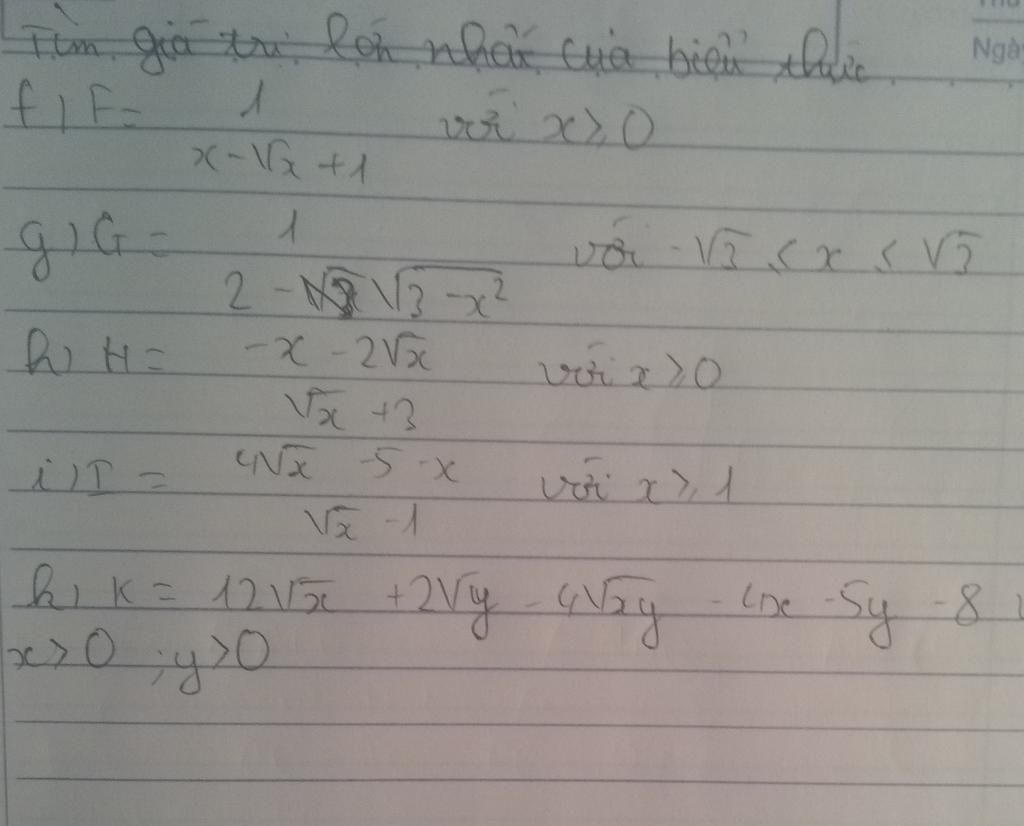 Tìm giá trị lớn nhất của biểu thức
Ngày
f) F = 1 / (x - √x + 1) với x ≥ 0
g) G = 1 / (2 - √(3 - x²)) với -√3 ≤ x ≤ √3
h) H = (-x - 2√x) / (√x + 3) với x ≥ 0
i) I = (4√x - 5 - x) / (√x - 1) với x ≥ 1
k) K = 12√x + 2√y - 4√xy - 4x - 5y - 8
x > 0 ; y > 0